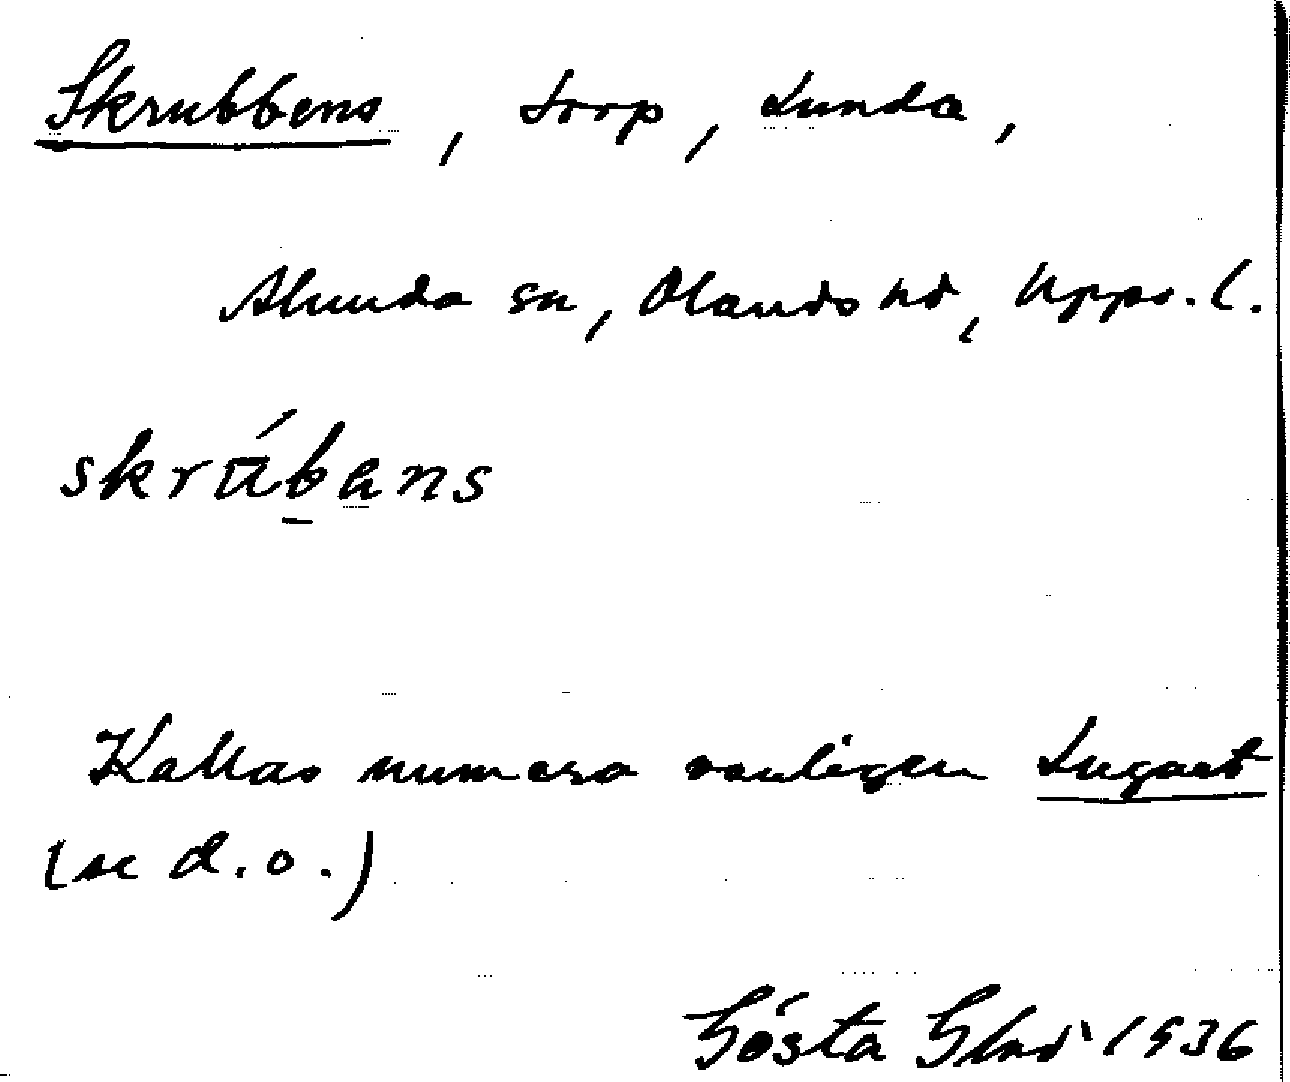 Skrubbens, torp, Lunda,
Alunda sn, Olands hd, Upps. l.
skrúbans
Kallas numera vanligen Lugnet
(se d. o.)
Gösta Glad 1936